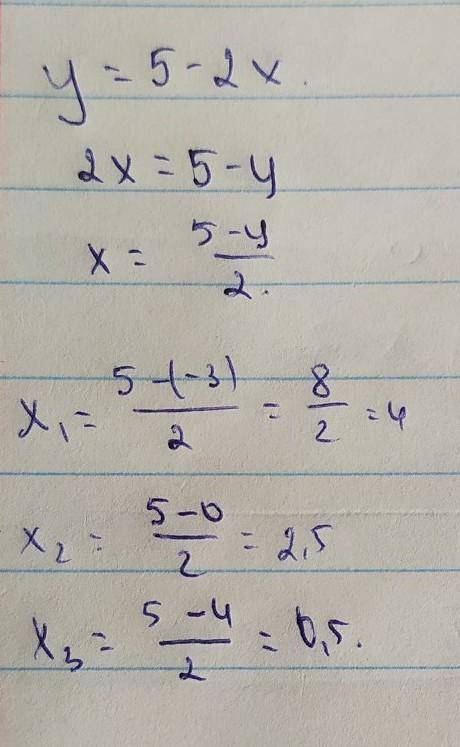 y = 5 - 2x.
2x = 5 - y
x = \frac{5 - y}{2.}
x₁ = \frac{5 - (-3)}{2} = \frac{8}{2} = 4
x₂ = \frac{5 - 0}{2} = 2,5
x₃ = \frac{5 - 4}{2} = 0,5.